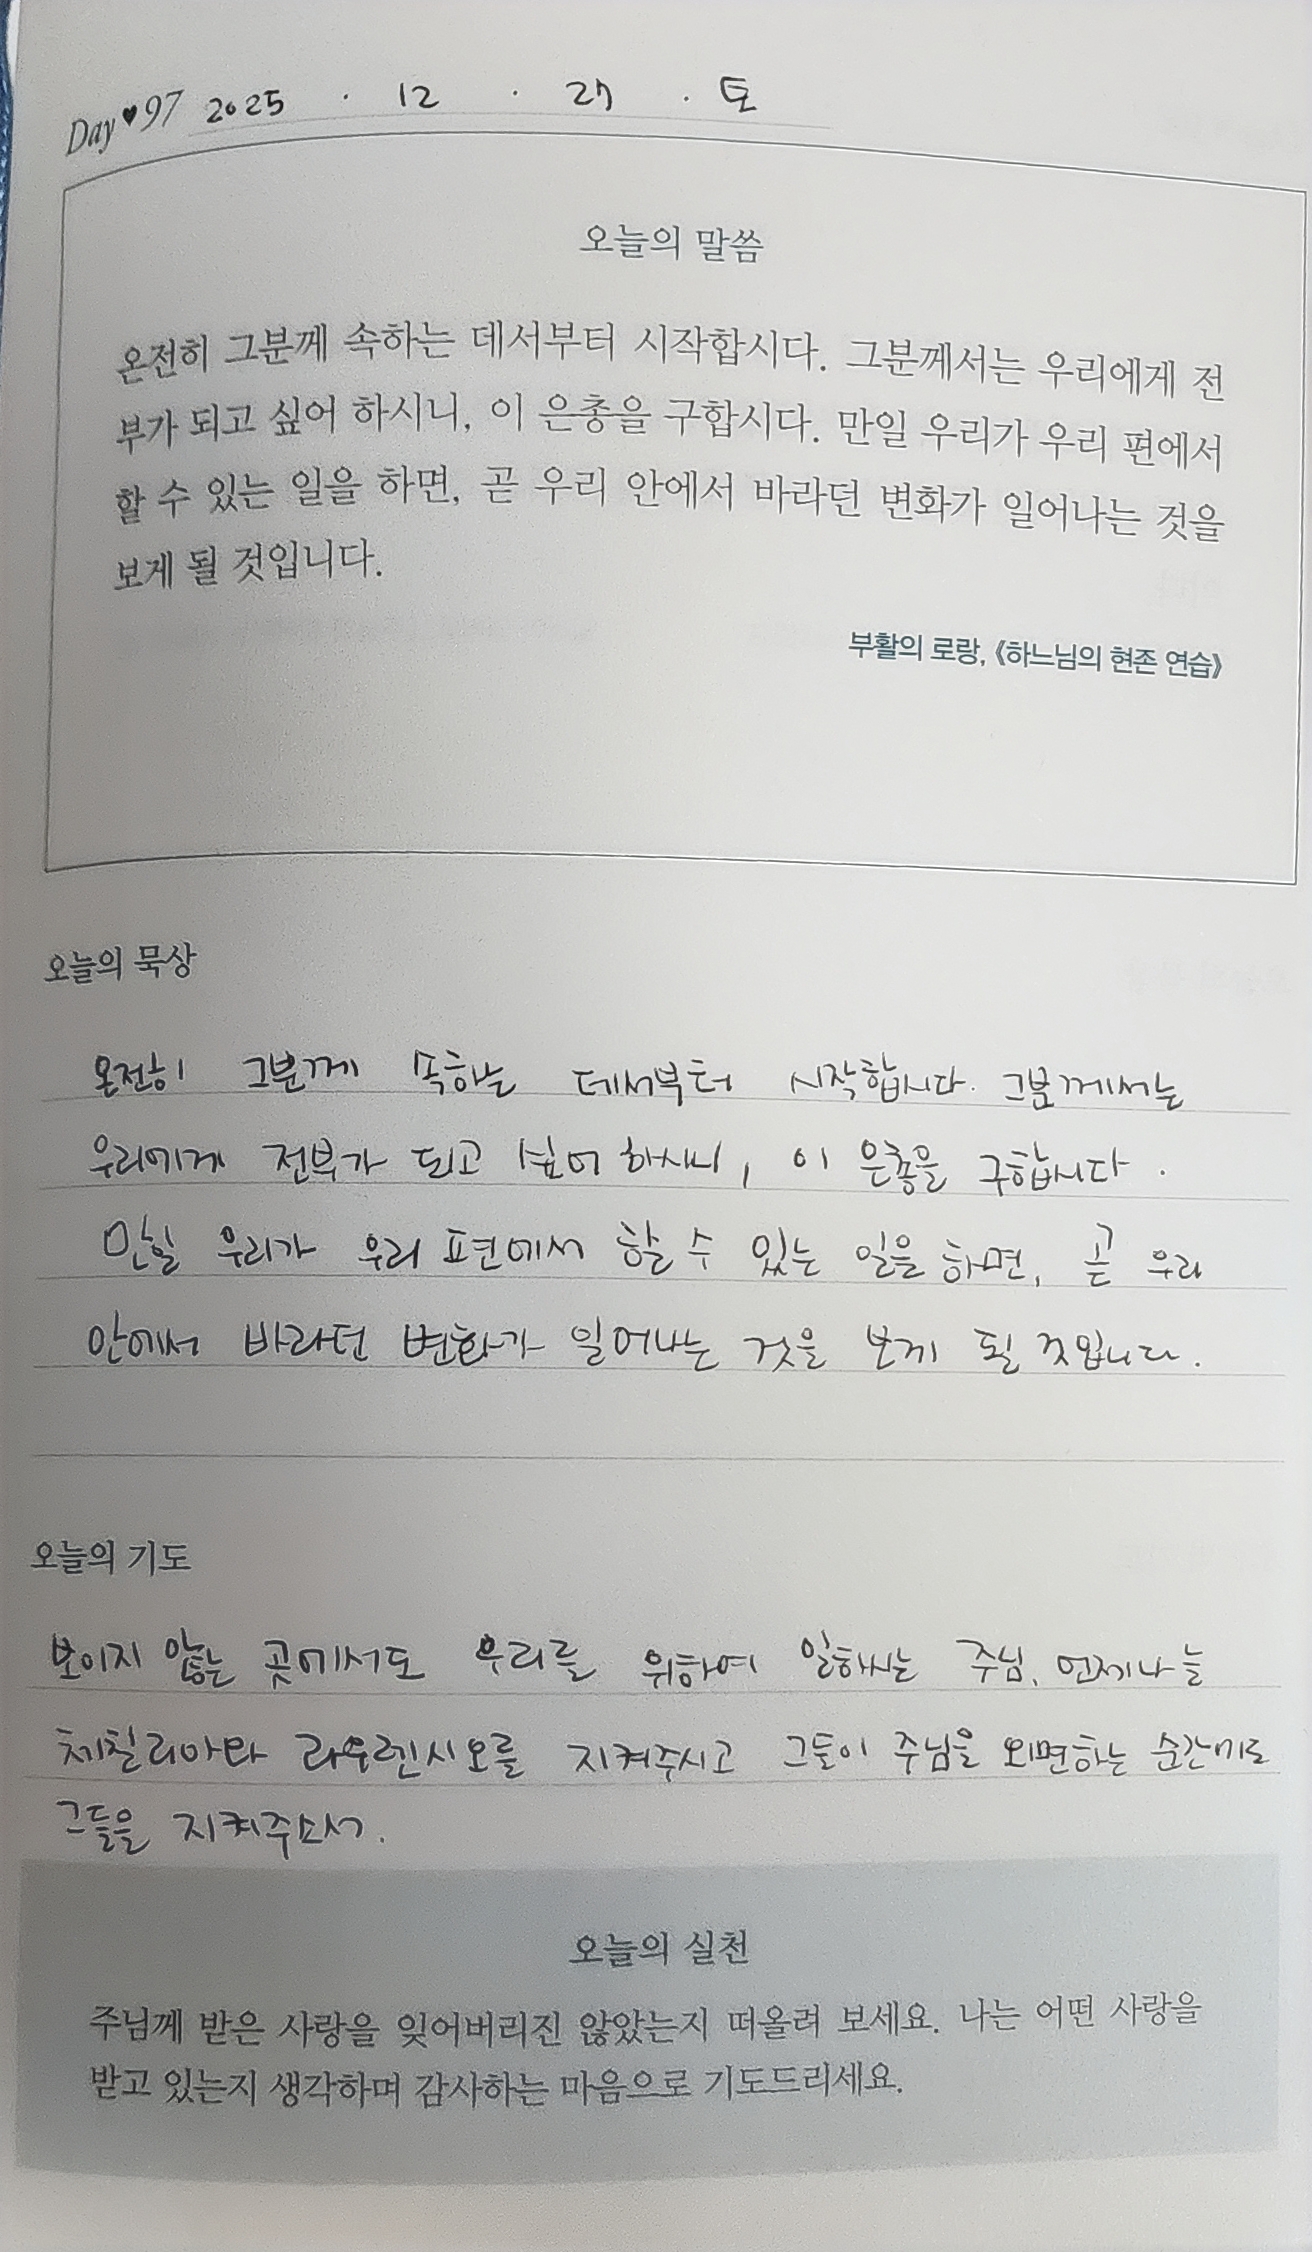 Day♥97 2025 . 12 . 27 . 토
오늘의 말씀
온전히 그분께 속하는 데서부터 시작합시다. 그분께서는 우리에게 전
부가 되고 싶어 하시니, 이 은총을 구합시다. 만일 우리가 우리 편에서
할 수 있는 일을 하면, 곧 우리 안에서 바라던 변화가 일어나는 것을
보게 될 것입니다.
부활의 로랑, 《하느님의 현존 연습》
오늘의 묵상
온전히 그분께 속하는 데서부터 시작합시다. 그분께서는
우리에게 전부가 되고 싶어 하시니, 이 은총을 구합시다.
만일 우리가 우리 편에서 할 수 있는 일을 하면, 곧 우리
안에서 바라던 변화가 일어나는 것을 보게 될 것입니다.
오늘의 기도
보이지 않는 곳에서도 우리를 위하여 일하시는 주님, 언제나 늘
체칠리아와 라우렌시오를 지켜주시고 그들이 주님을 외면하는 순간에도
그들을 지켜주소서.
오늘의 실천
주님께 받은 사랑을 잊어버리진 않았는지 떠올려 보세요. 나는 어떤 사랑을
받고 있는지 생각하며 감사하는 마음으로 기도드리세요.